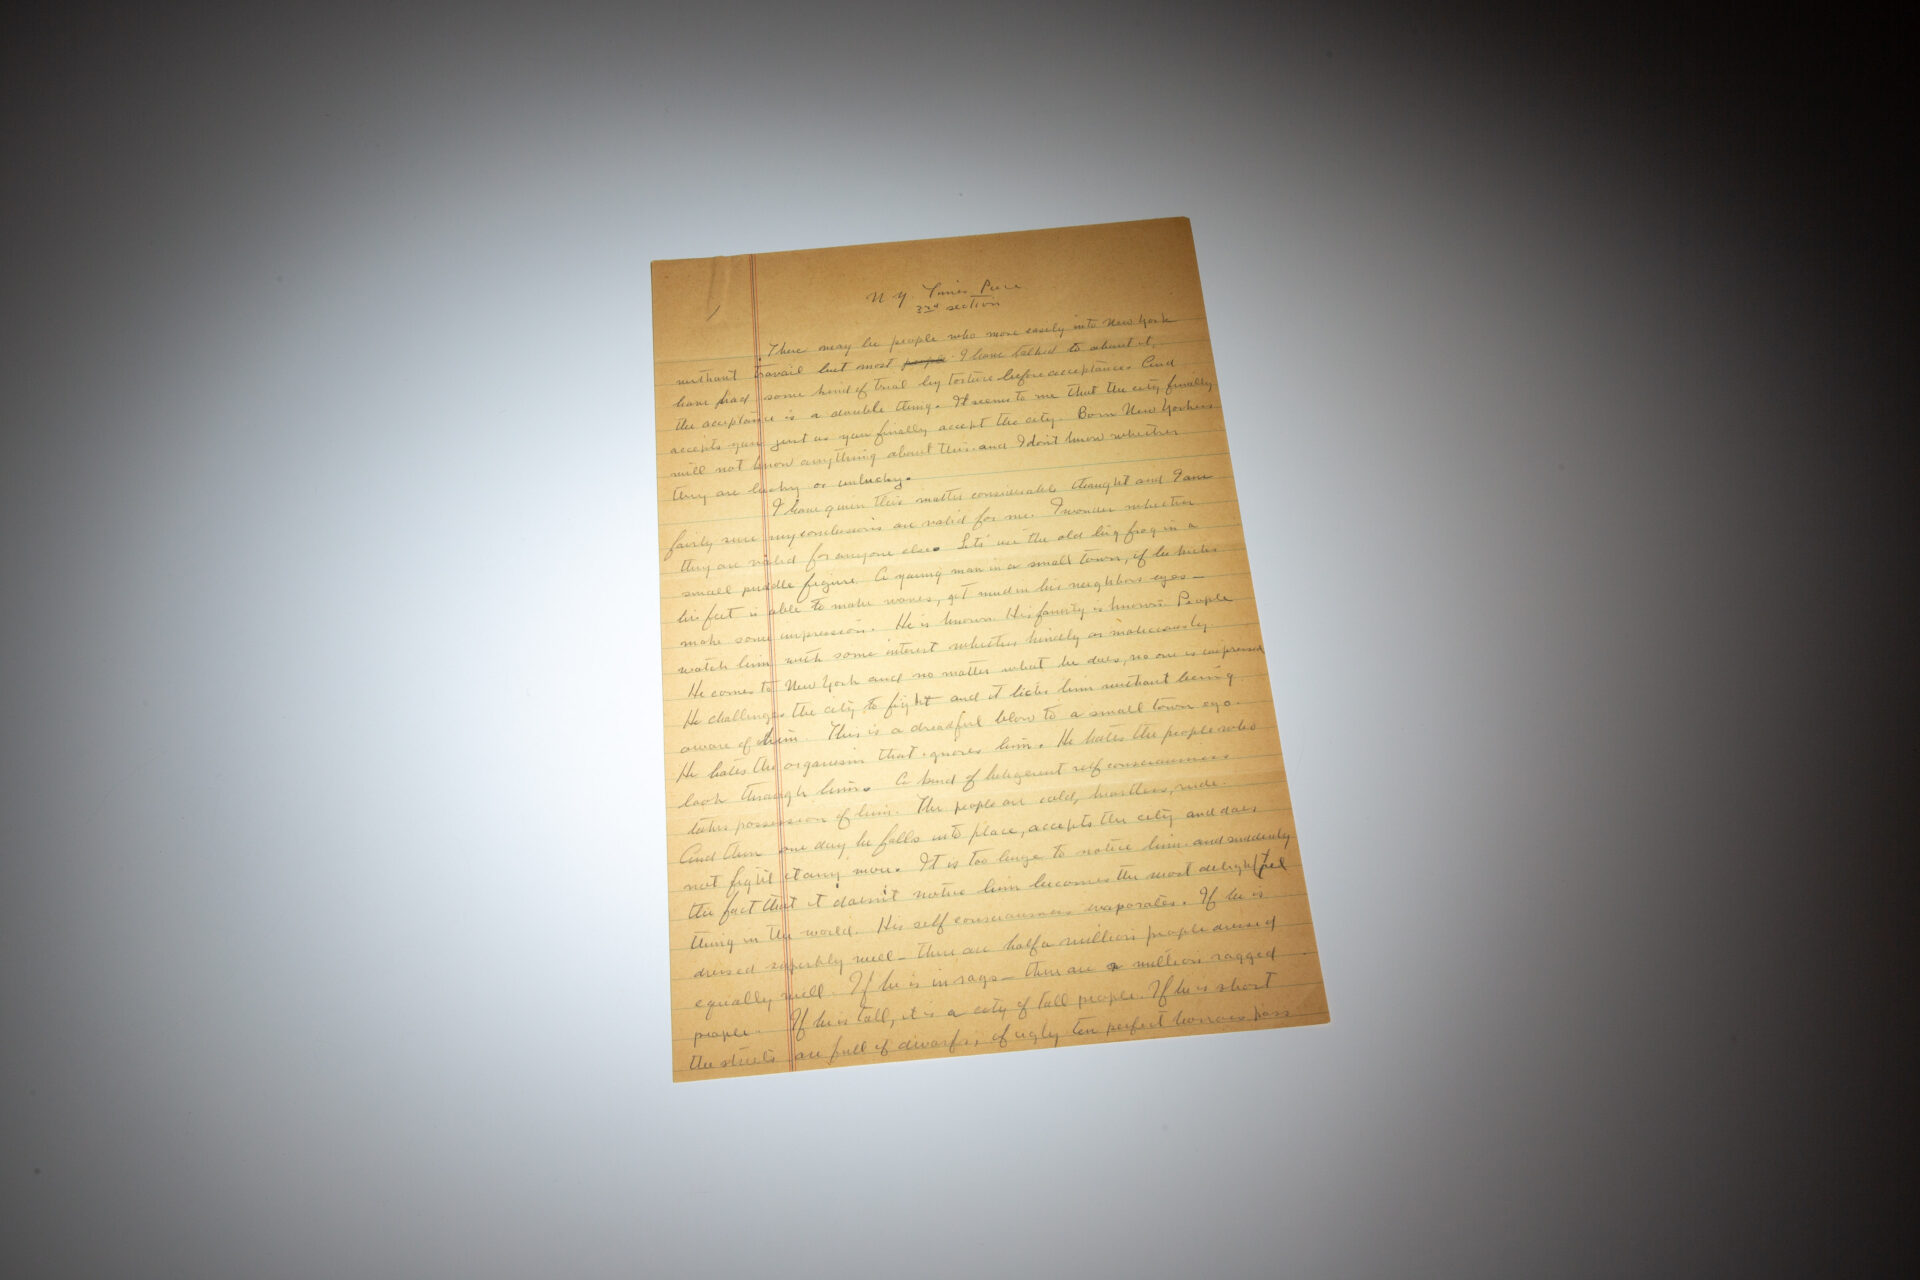 N Y. Times Piece
3rd section
There may be people who move easily into New York
without travail but most people I have talked to about it,
have had some kind of trial by torture before acceptance. And
the acceptance is a double thing. It seems to me that the city finally
accepts you just as you finally accept the city. Born New Yorkers
will not know anything about this and I don't know whether
they are lucky or unlucky.
I have given this matter considerable thought and I am
fairly sure my conclusions are valid for me. I wonder whether
they are valid for anyone else. Lets' use the old big frog in a
small puddle figure. A young man in a small town, if he kicks
his feet is able to make waves, get mud in his neighbors eyes —
make some impression. He is known. His family is known. People
watch him with some interest whether kindly or maliciously.
He comes to New York and no matter what he does, no one is impressed
He challenges the city to fight and it licks him without being
aware of him. This is a dreadful blow to a small town ego.
He hates the organism that ignores him. He hates the people who
look through him. A kind of beligerent self consciousness
takes possession of him. The people are cold, heartless, rude.
And then one day he falls into place, accepts the city and does
not fight it any more. It is too huge to notice him and suddenly
the fact that it doesn't notice him becomes the most delightful
thing in the world. His self consciousness evaporates. If he is
dressed superbly well — there are half a million people dressed
equally well. If he is in rags — there are a million ragged
people. If he is tall, it is a city of tall people. If he is short
the streets are full of dwarfs, if ugly ten perfect horrors pass